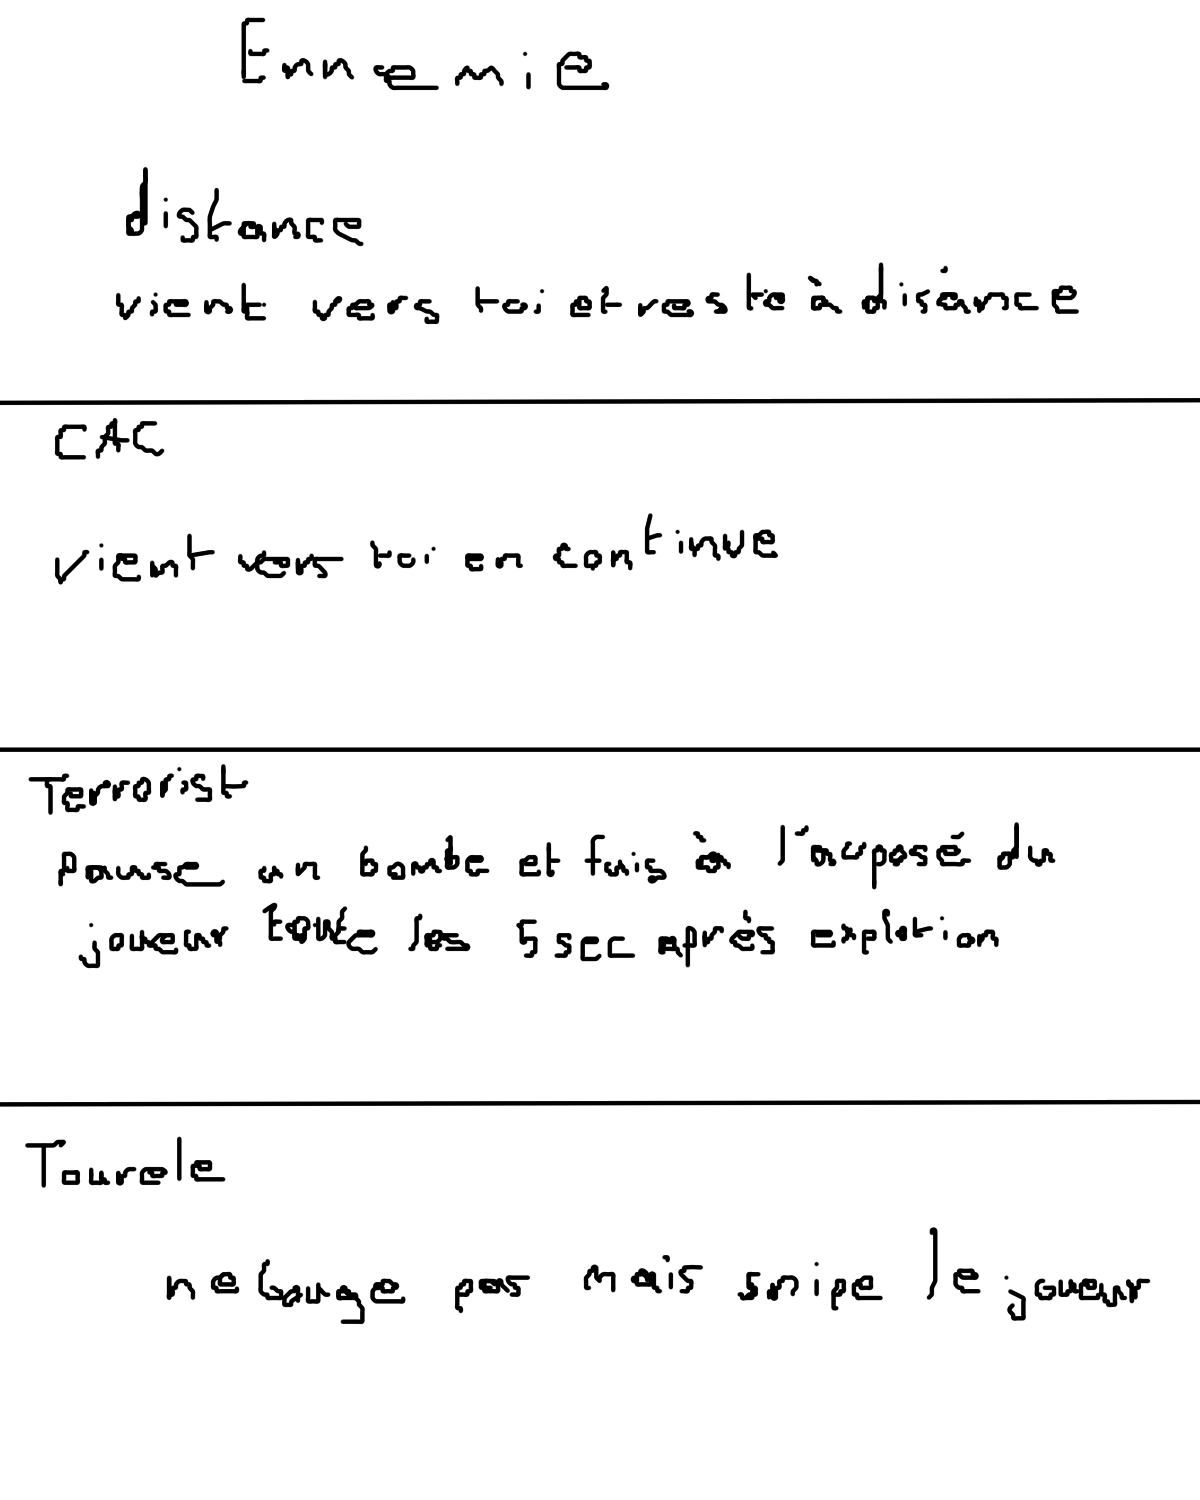 Ennemie
distance
vient vers toi et reste à disance
CAC
vient vers toi en continue
Terrorist
pause un bombe et fuis à l'auposé du
joueur toute les 5 sec après explotion
Tourele
ne bouge pas mais snipe le joueur